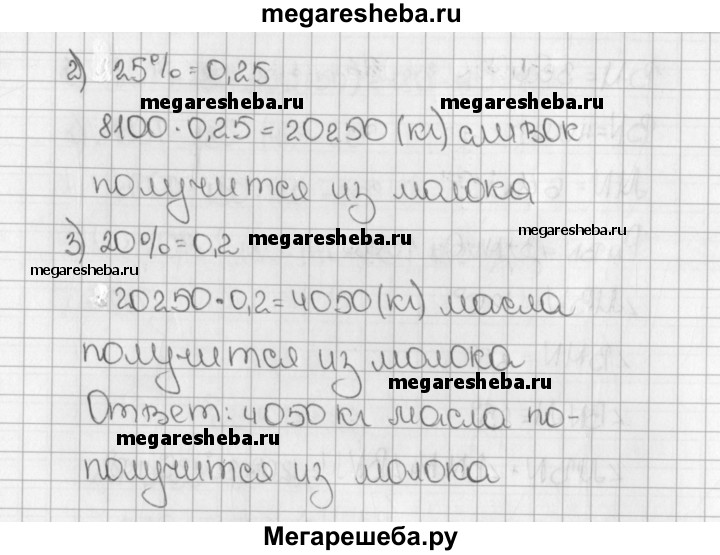 megaresheba.ru
2) 25% = 0,25
megaresheba.ru megaresheba.ru
8100 · 0,25 = 20250 (кг) сливок
получится из молока
megaresheba.ru
3) 20% = 0,2 megaresheba.ru
megaresheba.ru
20250 · 0,2 = 4050 (кг) масла
получится из молока
megaresheba.ru
Ответ: 4050 кг масла по-
megaresheba.ru
получится из молока
Мегарешеба.ру